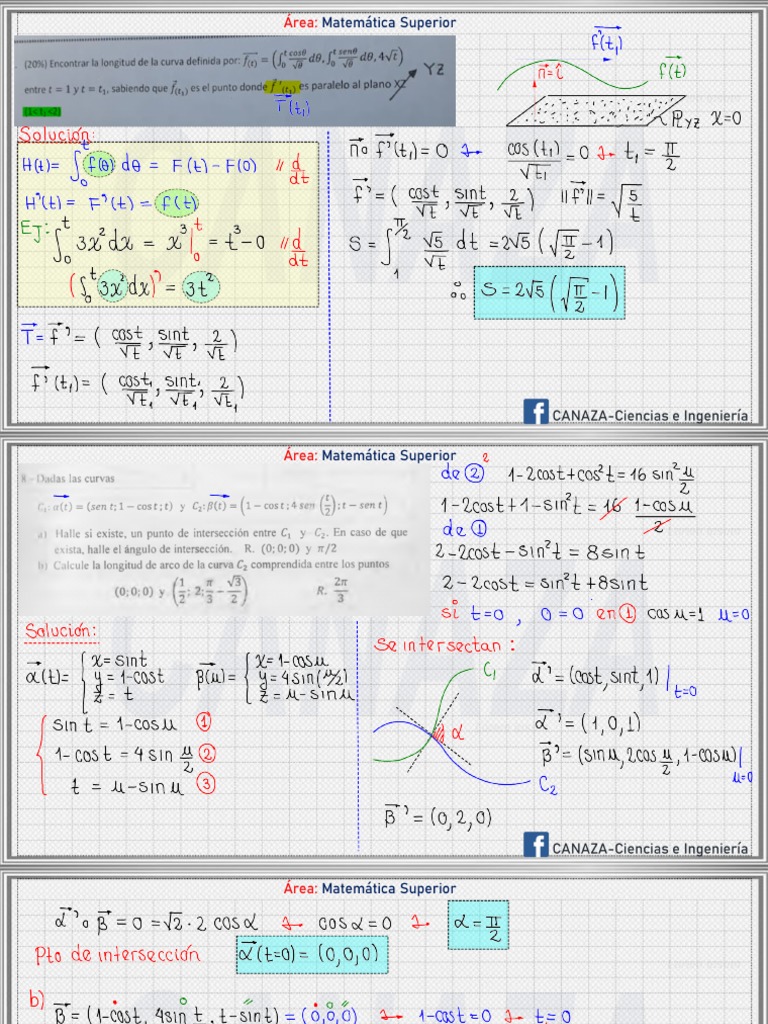 Área: Matemática Superior
(20%) Encontrar la longitud de la curva definida por: f(t) = (∫₀ᵗ cosθ/√θ dθ, ∫₀ᵗ senθ/√θ dθ, 4√t)
entre t = 1 y t = t₁, sabiendo que f(t₁) es el punto donde f'(t₁) es paralelo al plano XZ
YZ
T(t₁)
(1<t₁<2)
f'(t₁)
n=î
f(t)
PLYZ X=0
Solución:
H(t)= ∫₀ᵗ f(θ) dθ = F(t)-F(0) // d/dt
H'(t) = F'(t) = f(t)
EJ: ∫₀ᵗ 3x²dx = x³|₀ᵗ = t³-0 // d/dt
(∫₀ᵗ 3x²dx)' = 3t²
T=f'=( cost/√t, sint/√t, 2/√t)
f'(t₁)=( cost₁/√t₁, sint₁/√t₁, 2/√t₁)
n∘f'(t₁)=0 → cos(t₁)/√t₁=0 → t₁=π/2
f'=( cost/√t, sint/√t, 2/√t) ||f'||=√(5/t)
S=∫₁^(π/2) √5/√t dt =2√5(√(π/2)-1)
∴ S=2√5(√(π/2)-1)
CANAZA-Ciencias e Ingeniería
Área: Matemática Superior
8.- Dadas las curvas
C₁: α(t) = (sen t; 1-cos t; t) y C₂: β(t) = (1-cos t; 4 sen(t/2); t-sen t)
a) Halle si existe, un punto de intersección entre C₁ y C₂. En caso de que
exista, halle el ángulo de intersección. R. (0;0;0) y π/2
b) Calcule la longitud de arco de la curva C₂ comprendida entre los puntos
(0;0;0) y (1/2; 2; π/3 - √3/2) R. 2π/3
Solución:
α(t)= { x=sint
y=1-cost
z=t
β(μ)= { x=1-cosμ
y=4sin(μ/2)
z=μ-sinμ
sint=1-cosμ ①
1-cost=4sin μ/2 ②
t=μ-sinμ ③
de ②² 1-2cost+cos²t=16sin² μ/2
1-2cost+1-sin²t=16 (1-cosμ)/2
de ①
2-2cost-sin²t=8sint
2-2cost=sin²t+8sint
si t=0, 0=0 en ① cosμ=1 μ=0
Se intersectan:
C₁
α
C₂
α'=(cost,sint,1)|t=0
α'=(1,0,1)
β'=(sinμ,2cos μ/2,1-cosμ)|μ=0
β'=(0,2,0)
CANAZA-Ciencias e Ingeniería
Área: Matemática Superior
α'∘β=0=√2·2cosα → cosα=0 → α=π/2
Pto de intersección α(t=0)=(0,0,0)
b)
β=(1-cost, 4sin t, t-sint)=(0,0,0) → 1-cost=0 → t=0